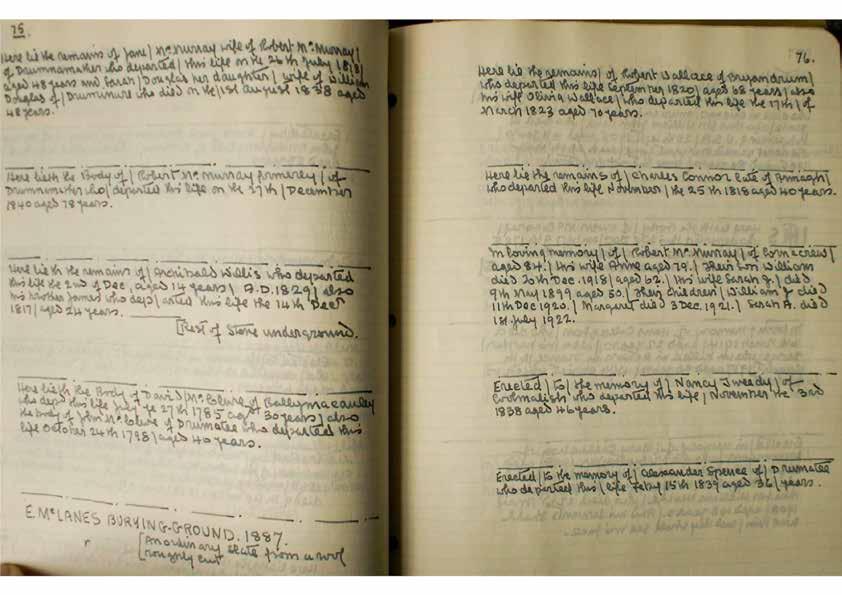 75
Here lie the remains of Jane / Mc Murray wife of Robert Mc Murray /
of Drumnamather who departed / this life on the 26th July 1818 /
aged 48 years and Sarah / Douglas her daughter / wife of William
Douglas of / Druminure who died on the / 1st August 1838 aged
48 years.
Here lieth the Body of / Robert Mc Murray Armerley / of
Drumnamather who / departed this life on the 27th / December
1840 aged 78 years.
Here lieth the remains of / Archibald Willis who departed
this life the 2nd of Dec, aged 14 years / A.D. 1829 / also
his brother James who dep / arted this life the 14th Decr
1817 / aged 24 years.
[Rest of Stone underground.
Here lieth the Body of David / Mc Clure of Ballymacauley
who depd this life July ye 27th 1785 aged 30 years / also
the body of John Mc Clure of Drumatee who departed this
life October 24th 1798 / aged 40 years.
E. McLANES BURYING-GROUND. 1887.
[An ordinary slate from a roof
roughly cut
76.
Here lie the remains / of Robert Wallace of Bryandrum /
who departed this life September 1820 / aged 68 years / also
his wife Olivia Wallace / who departed this life the 17th / of
March 1823 aged 70 years.
Here lie the remains of / Charles Connor late of Armagh /
who departed this life November / the 25th 1818 aged 40 years.
In loving memory / of / Robert Mc Murray / of Cornacrew /
aged 84. / His wife Anne aged 79. / Their son William
died 20th Dec. 1918 / aged 62. / His wife Sarah J. / died
9th May 1899 aged 50. / Their children / William J. died
11th Dec 1920. / Margaret died 3 Dec. 1921. / Sarah A. died
1st July 1922.
Erected / to / the memory of / Nancy Tweedy / of
Coolmalish who departed this life / November the 3rd
1838 aged 46 years.
Erected / to the memory of / Alexander Spence of / Drumatee
who departed this / life Febry 15th 1839 aged 36 / years.